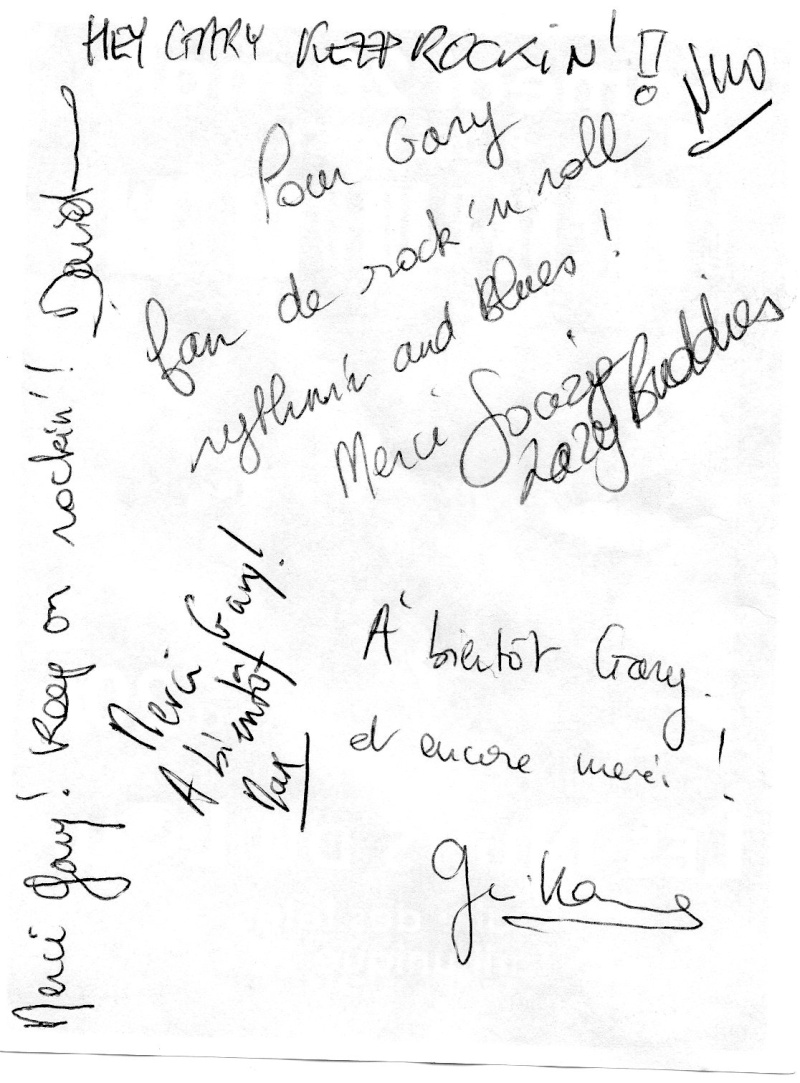 HEY GARY KEEP ROCKiN' !!
NiNo
Pour Gary
fan de rock'n roll
rythm'n and Blues !
Merci Soazig
Lazy Buddies
Merci Gary ! Keep on rockin' ! David
Merci
A bientôt Gary !
A' bientôt Gary.
et encore merci !